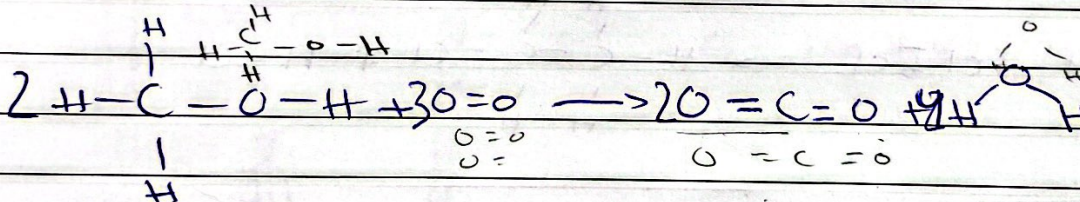 H H
H-C-O-H O
H H
2 H-C-O-H +3O=O ⟶2O=C=O +4H O H
O=O O=C=O
O=
H